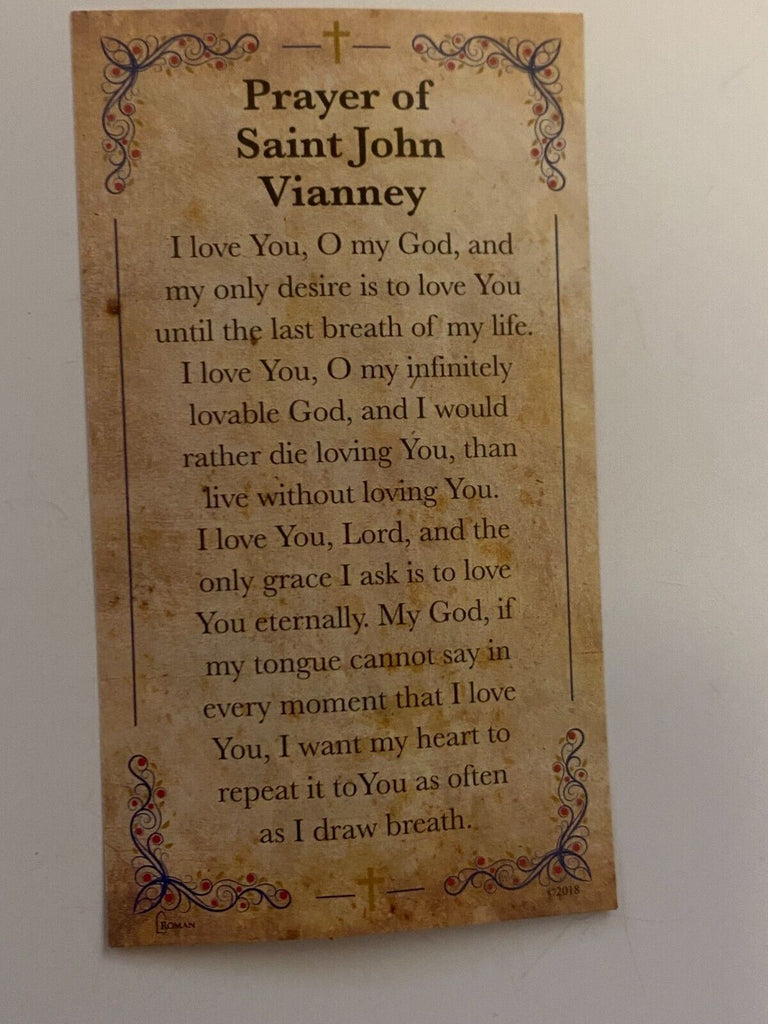 Prayer of
Saint John
Vianney
I love You, O my God, and
my only desire is to love You
until the last breath of my life.
I love You, O my infinitely
lovable God, and I would
rather die loving You, than
live without loving You.
I love You, Lord, and the
only grace I ask is to love
You eternally. My God, if
my tongue cannot say in
every moment that I love
You, I want my heart to
repeat it to You as often
as I draw breath.
©2018
ROMAN